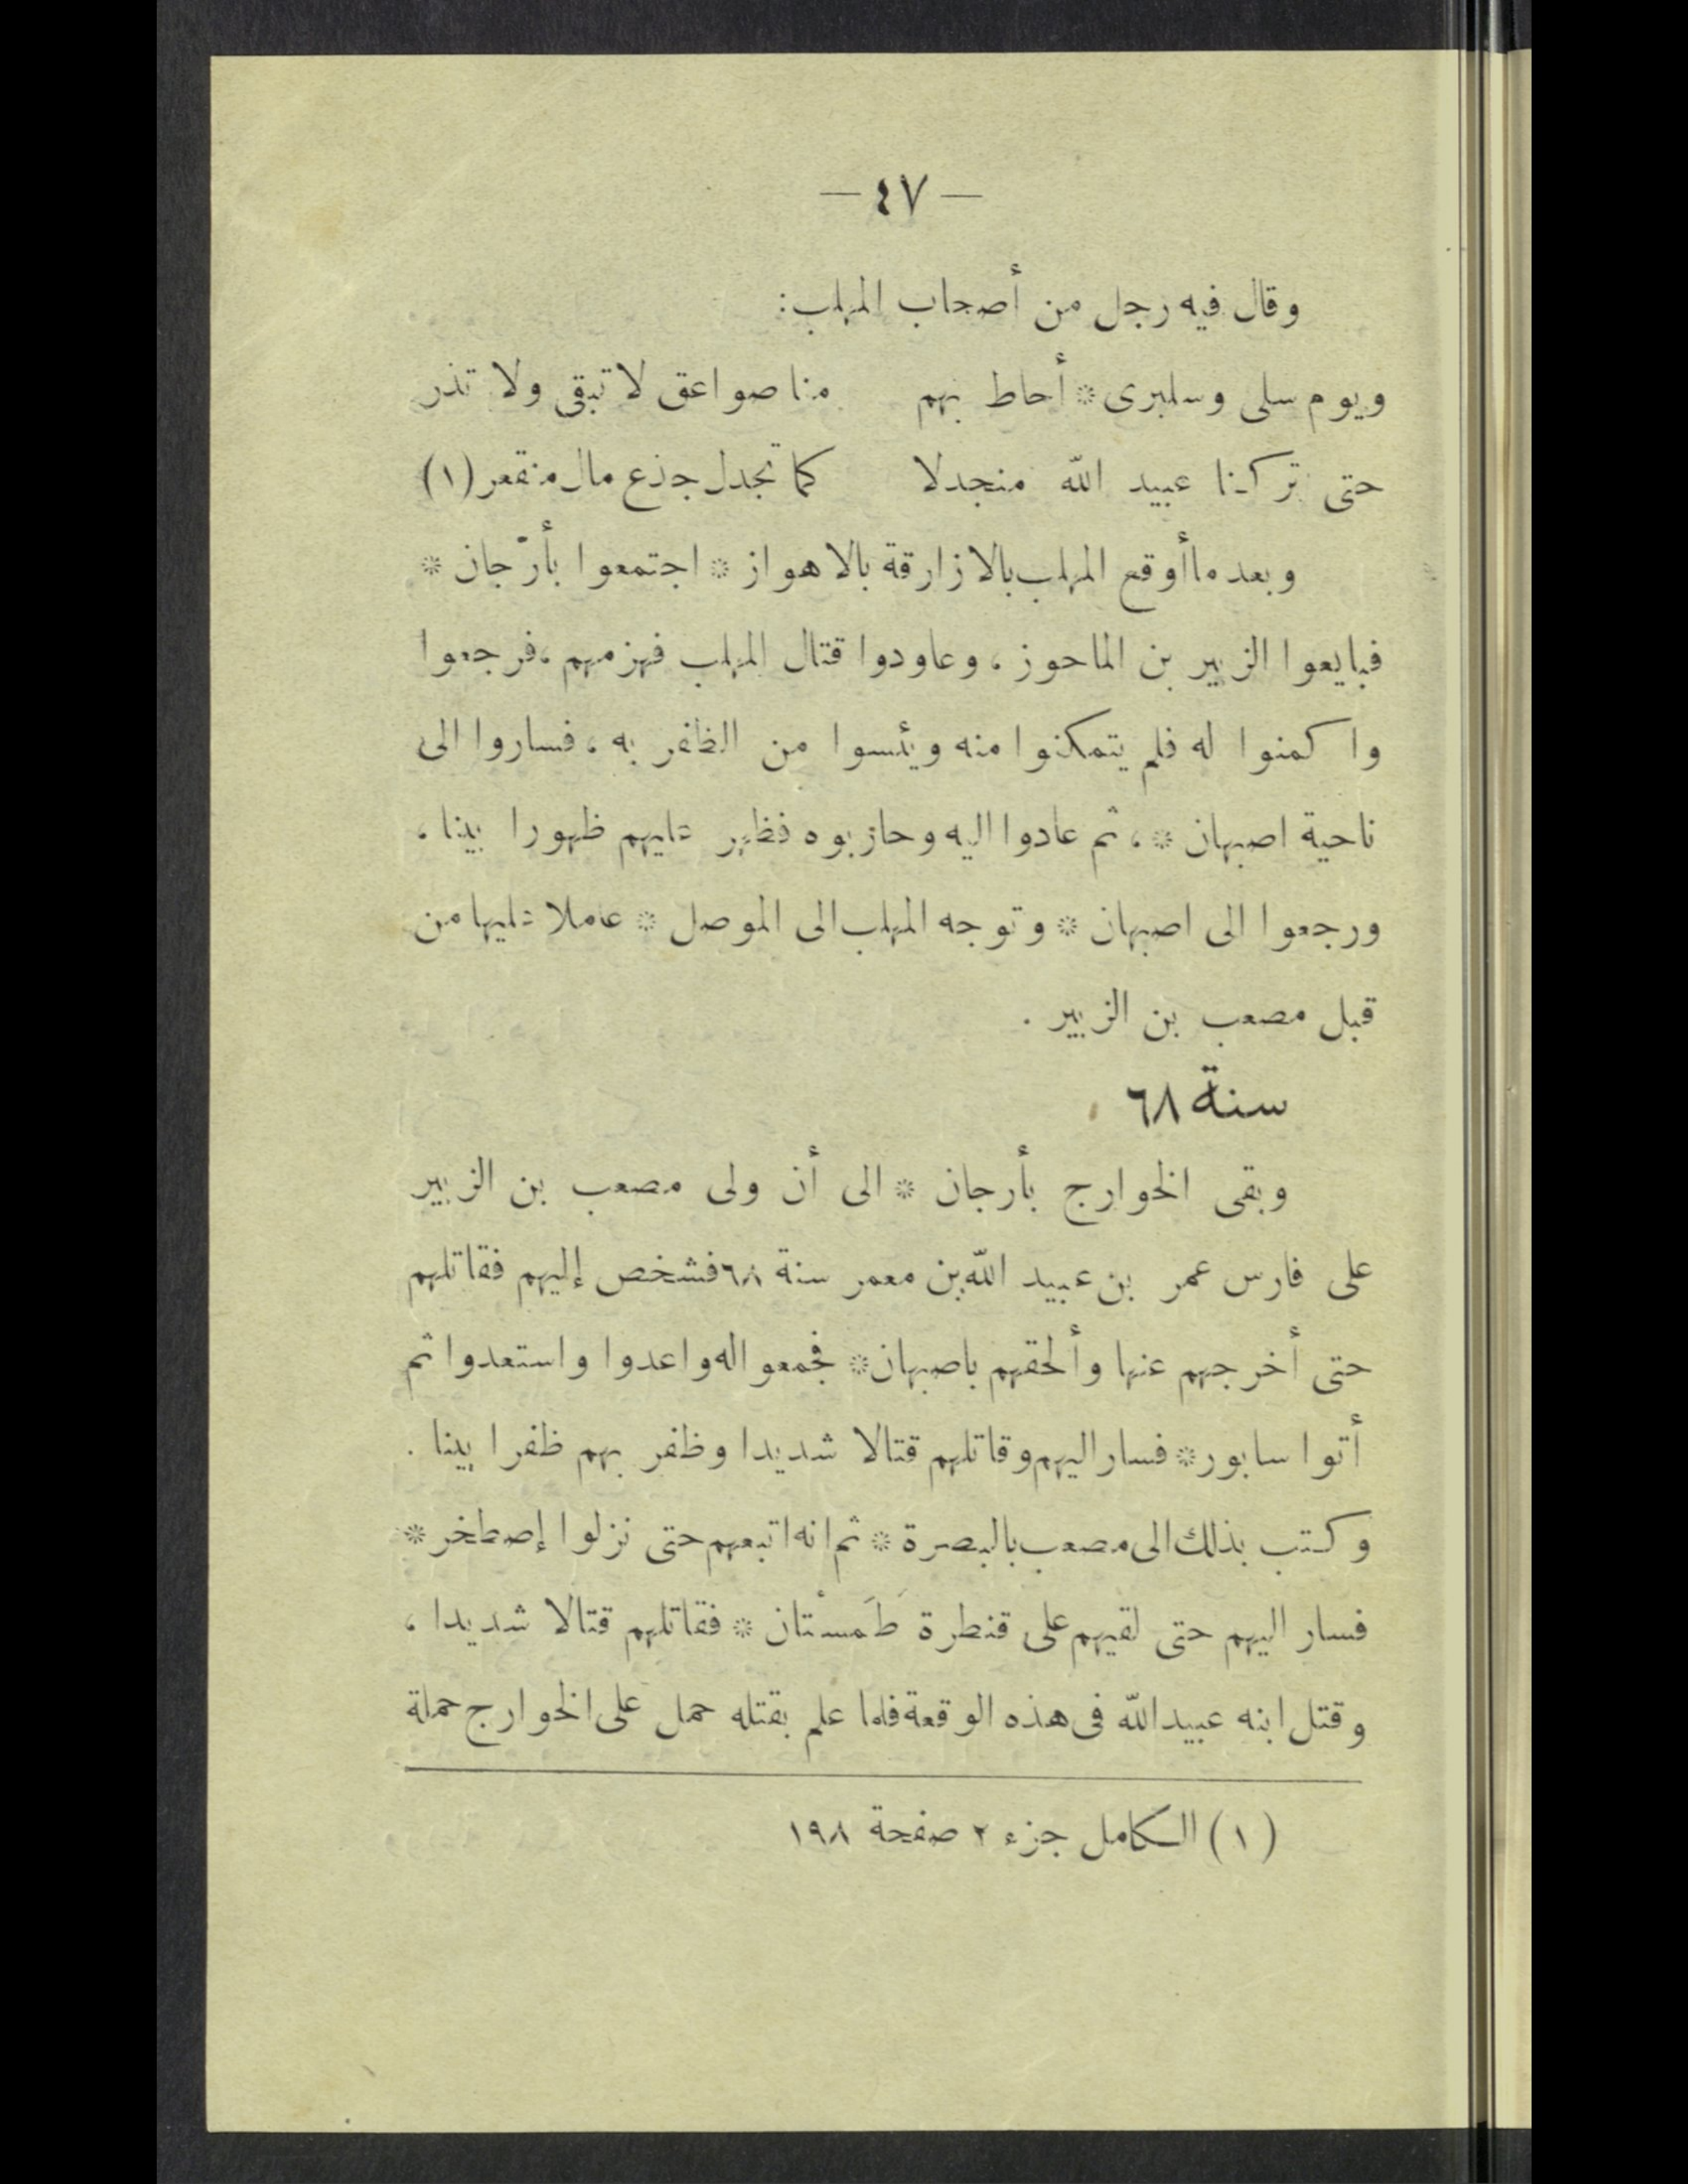 — ٤٧ —
وقال فيه رجل من أصحاب المهلب:
ويوم سلى وسلبرى * أحاط بهم منا صواعق لا تبقى ولا تذر
حتى تركنا عبيد الله منجدلا كما تجدل جذع مال منقعر (١)
وبعد ما أوقع المهلب بالازارقة بالاهواز * اجتمعوا بأرّجان *
فبايعوا الزبير بن الماحوز ، وعاودوا قتال المهلب فهزمهم ، فرجعوا
واكمنوا له فلم يتمكنوا منه ويئسوا من الظفر به ، فساروا الى
ناحية اصبهان * ، ثم عادوا اليه وحاربوه فظهر عليهم ظهورا بينا ،
ورجعوا الى اصبهان * وتوجه المهلب الى الموصل * عاملا عليها من
قبل مصعب بن الزبير .
سنة ٦٨
وبقى الخوارج بأرجان * الى أن ولى مصعب بن الزبير
على فارس عمر بن عبيد الله بن معمر سنة ٦٨ فشخص إليهم فقاتلهم
حتى أخرجهم عنها وألحقهم باصبهان * فجمعوا له واعدوا واستعدوا ثم
أتوا سابور * فسار اليهم وقاتلهم قتالا شديدا وظفر بهم ظفرا بينا .
وكتب بذلك الى مصعب بالبصرة * ثم انه اتبعهم حتى نزلوا إصطخر *
فسار اليهم حتى لقيهم على قنطرة طَمَسْتان * فقاتلهم قتالا شديدا ،
وقتل ابنه عبيد الله فى هذه الوقعة فلما علم بقتله حمل على الخوارج حملة
(١) الكامل جزء ٢ صفحة ١٩٨